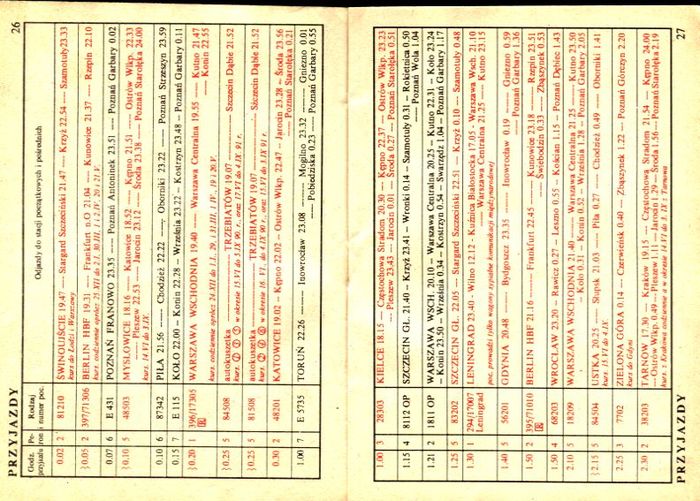 26
PRZYJAZDY
Godz. przyjazdu
Pe-
ron
Rodzaj i numer poc.
Odjazdy do stacji początkowych i pośrednich
0.02 2 81210 ŚWINOUJŚCIE 19.47 — Stargard Szczeciński 21.47 — Krzyż 22.54 — Szamotuły 23.33
kurs do Łodzi i Warszawy
0.05 2 397/71306 BERLIN HBF 19.31 — Frankfurt n.O 21.04 — Kunowice 21.37 — Rzepin 22.10
0.07 6 E 431 POZNAŃ FRANOWO 23.35 — Poznań Antoninek 23.51 — Poznań Garbary 0.02
0.10 5 48503 MYSŁOWICE 18.16 — Katowice 18.52 — Kępno 21.51 — Ostrów Wlkp. 22.33
— Pleszew 22.53 — Jarocin 23.12 — Środa 23.38 — Poznań Starołęka 24.00
kurs. 14 VI do 3 IX
0.10 6 87342 PIŁA 21.56 — Chodzież 22.22 — Oborniki 23.22 — Poznań Strzeszyn 23.59
0.15 7 E 115 KOŁO 22.00 — Konin 22.28 — Września 23.22 — Kostrzyn 23.48 — Poznań Garbary 0.11
0.20 1 396/17305 WARSZAWA WSCHODNIA 19.40 — Warszawa Centralna 19.55 — Kutno 21.47
— Konin 22.55
0.25 5 84508 autokuszetka — TRZEBIATÓW 19.07 — Szczecin Dąbie 21.52
0.25 5 81508 autokuszetka — TRZEBIATÓW 19.07 — Szczecin Dąbie 21.52
0.30 2 48201 KATOWICE 19.02 — Kępno 22.02 — Ostrów Wlkp. 22.47 — Jarocin 23.28 — Środa 23.56
— Poznań Starołęka 0.21
1.00 7 E 5735 TORUŃ 22.26 — Inowrocław 23.08 — Mogilno 23.32 — Gniezno 0.01
— Pobiedziska 0.23 — Poznań Garbary 0.55
27
PRZYJAZDY
1.00 3 28303 KIELCE 18.15 — Częstochowa Stradom 20.30 — Kępno 22.37 — Ostrów Wlkp. 23.23
— Pleszew 23.43 — Jarocin 0.01 — Środa 0.27 — Poznań Starołęka 0.51
1.15 4 8112 OP SZCZECIN GŁ. 21.40 — Krzyż 23.41 — Wronki 0.14 — Szamotuły 0.31 — Rokietnica 0.50
— Poznań Wola 1.04
1.21 2 1811 OP WARSZAWA WSCH. 20.10 — Warszawa Centralna 20.25 — Kutno 22.31 — Koło 23.24
— Konin 23.50 — Września 0.34 — Kostrzyn 0.54 — Swarzędz 1.04 — Poznań Garbary 1.17
1.25 5 83202 SZCZECIN GŁ. 22.05 — Stargard Szczeciński 22.51 — Krzyż 0.10 — Szamotuły 0.48
1.30 1 294/17007 Leningrad LENINGRAD 23.40 — Wilno 12.12 — Kuźnica Białostocka 17.05 — Warszawa Wsch. 21.10
— Warszawa Centralna 21.25 — Kutno 23.15
poc. prowadzi tylko wagony sypialne komunikacji międzynarodowej
1.40 5 56201 GDYNIA 20.48 — Bydgoszcz 23.35 — Inowrocław 0.19 — Gniezno 0.59
— Poznań Garbary 1.36
1.50 2 395/71010 BERLIN HBF 21.16 — Frankfurt 22.45 — Kunowice 23.18 — Rzepin 23.51
— Świebodzin 0.33 — Zbąszynek 0.53
1.50 4 68203 WROCŁAW 23.20 — Rawicz 0.27 — Leszno 0.55 — Kościan 1.15 — Poznań Dębiec 1.43
2.10 5 18209 WARSZAWA WSCHODNIA 21.40 — Warszawa Centralna 21.25 — Kutno 23.50
— Koło 0.31 — Konin 0.52 — Września 1.28 — Poznań Garbary 2.05
2.15 5 84504 USTKA 20.25 — Słupsk 21.03 — Piła 0.27 — Chodzież 0.49 — Oborniki 1.41
kurs. 15 VI do 4 IX
2.25 3 7702 ZIELONA GÓRA 0.14 — Czerwieńsk 0.40 — Zbąszynek 1.22 — Poznań Górczyn 2.20
kurs do Gdyni
2.30 2 38203 TARNÓW 17.30 — Kraków 19.15 — Częstochowa Stradom 21.54 — Kępno 24.00
— Ostrów Wlkp. 0.49 — Pleszew 1.11 — Jarocin 1.29 — Środa 1.56 — Poznań Starołęka 2.19